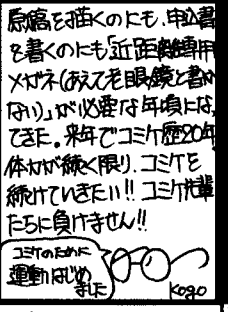 原稿を描くのにも、申込書
を書くのにも「近距離専用
メガネ(あえて老眼鏡と書か
ない)」が必要な年頃にな
てきた。来年でコミケ歴20年
体力が続く限り、コミケを
続けていきたい!!コミケ先輩
たちに負けません!!
コミケのために
運動はじめ
ました
Kogo